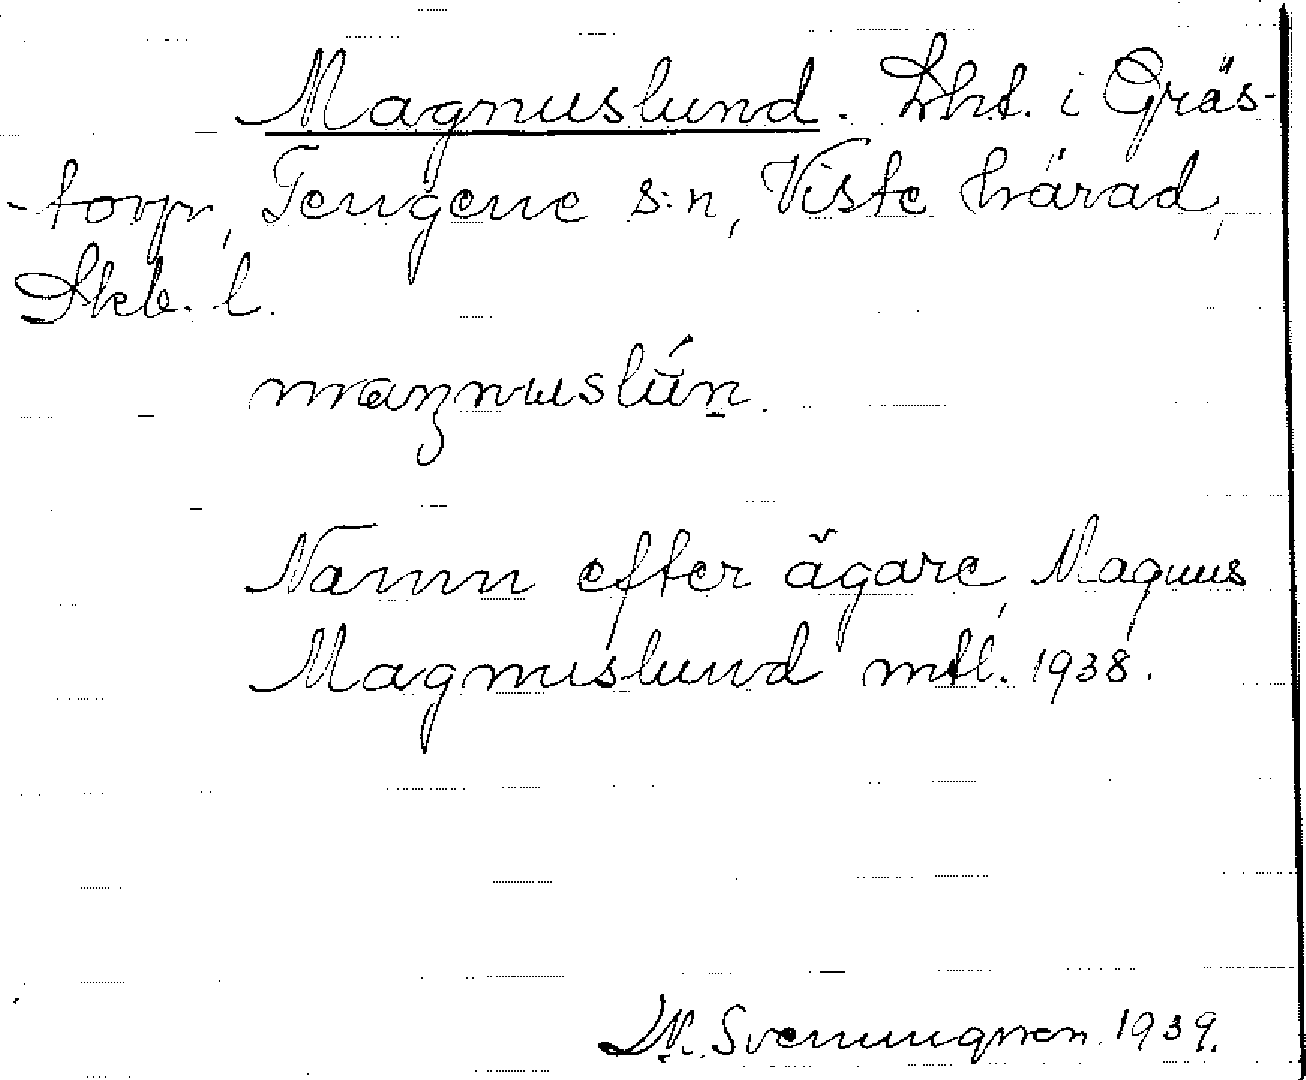 Magnuslund. Lht. i Gräs-
-torp, Tengene s:n, Viste härad,
Skb. l.
maŋnuslún.
Namn efter ägare, Magnus
Magnuslund mtl. 1938.
Svenungsson 1939.